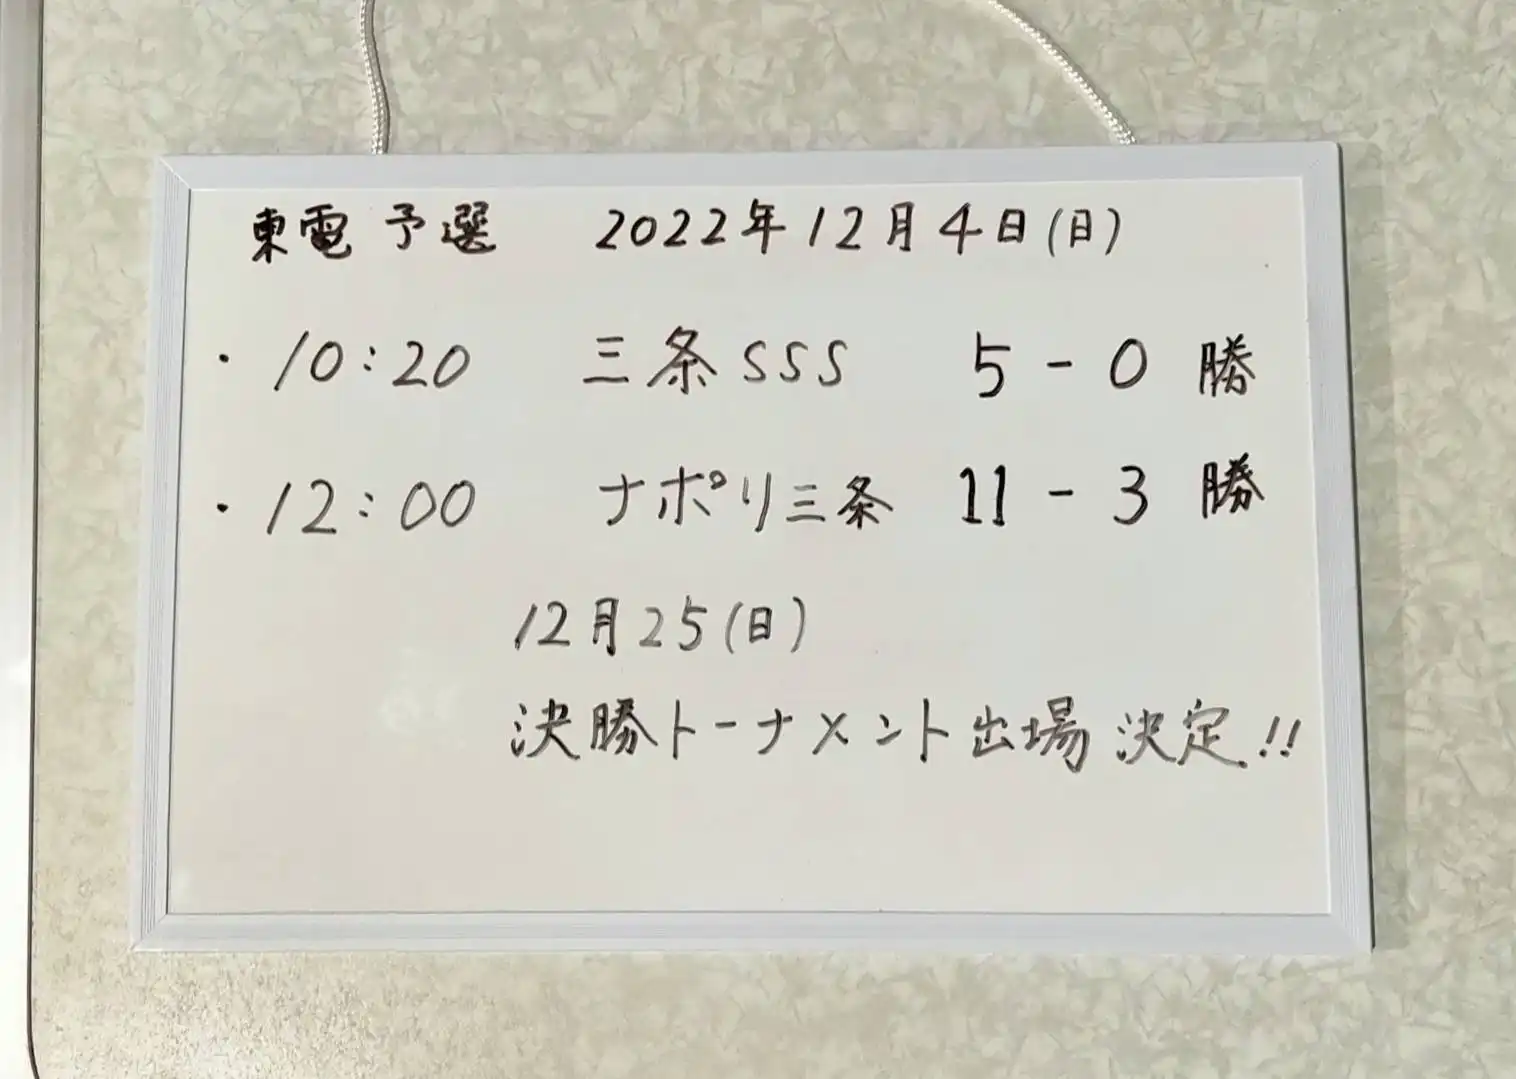 東電予選 2022年12月4日(日)
・10:20 三条SSS 5-0 勝
・12:00 ナポリ三条 11-3 勝
12月25(日)
決勝トーナメント出場決定!!